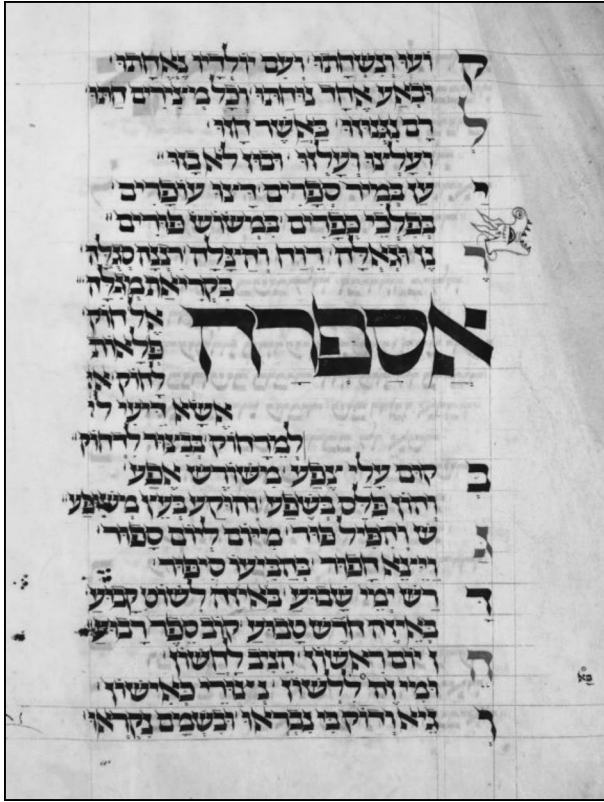 ק ועו ונשחתו ועם יולדיו נאחתו
אחר ניחתו וכל מיצירים חתו
ל רם באשר חזו
ועלצו ועלזו ובוז לא בזו
י עו ספרים עופרים
בפלכי כפרים במשוש פורים
ר נן וגאלה רווח והצלה תנה סגלה
בקריאת מגלה
אספרה אל חוק
פלאות
לחוק אי
אשא דיעי לי
למרחוק בבצור לרחוק
ב קום עלי צפע משורש אפע
והון פלס בשפע וחוקע בעץ משופע
ג ש והפיל פור מיום ליום ספור
וייצא הפור בהביעו סיפור
ד רש ימי שבוע באיזה לשוט קבוע
באיזה חדש טבוע קוב ספר רבוע
ה ן יום ראשון הגיב לחשון
ומי זה ללשון באישון
ו גיא ורוק בו נבראו ובשמם נקראו